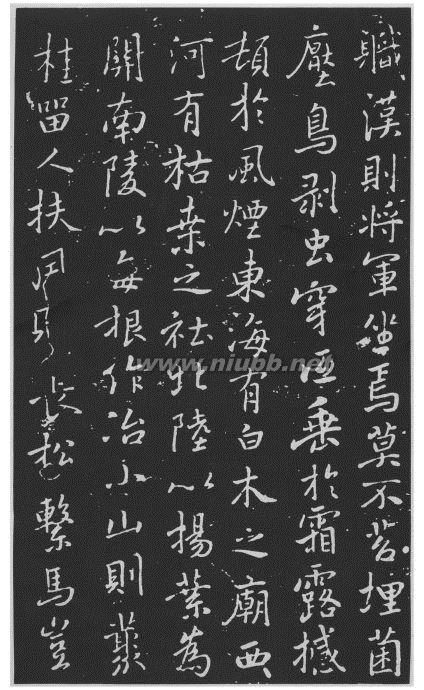 職漢則将軍坐焉莫不苔埋菌
壓鳥剥虫穿低垂於霜露撼
頓於風煙東海有白木之廟西
河有枯桒之社北陸以楊葉為
關南陵以每根作冶小山則藂
桂留人扶風則長松繫馬豈
www.niubb.net